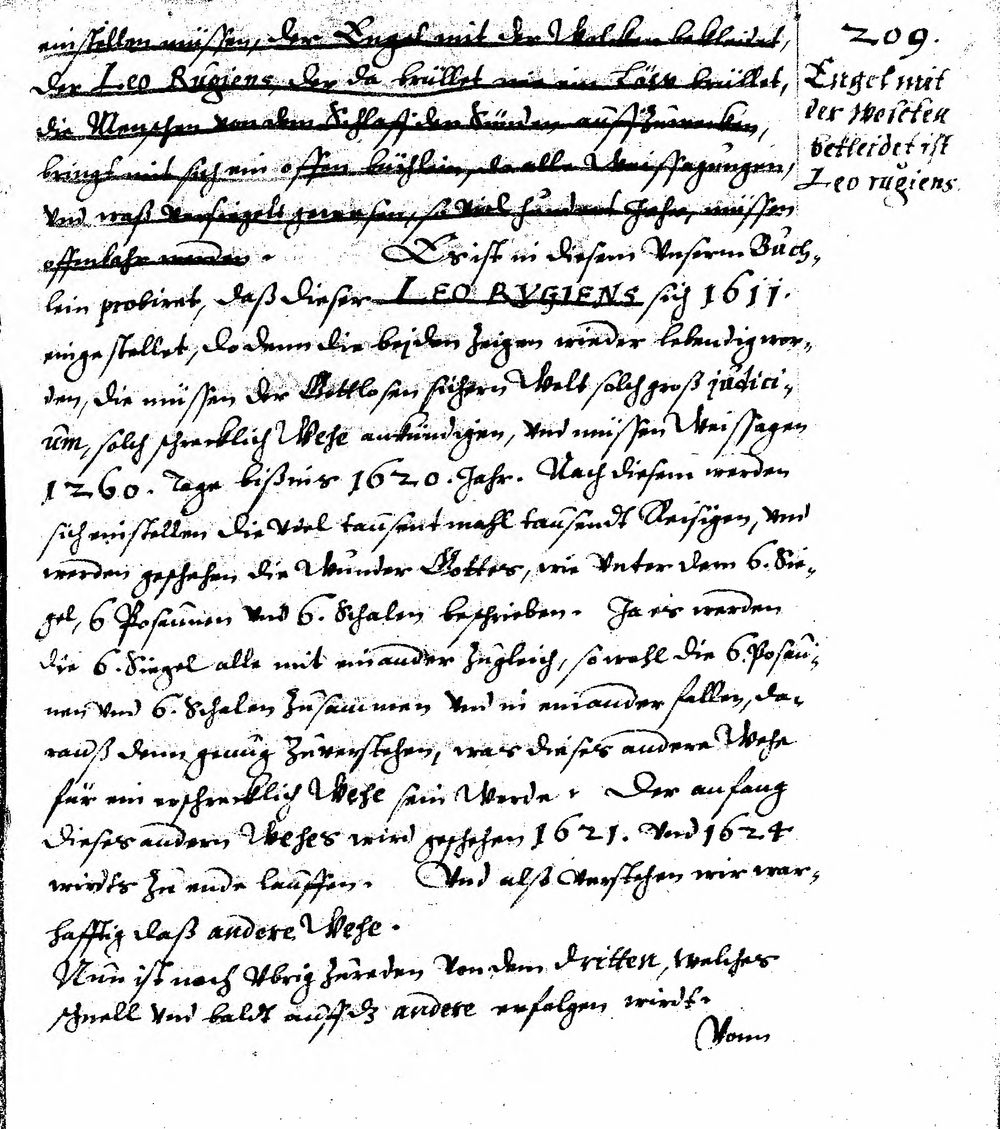 einstellen müssen, der Engel mit der Wolcken bekleidet,
der Leo Rugiens, der da brüllet wie ein Löw brüllet,
die Menschen von dem Schlaff der Sünden auffzuwecken,
bringt mit sich ein offen büchlein, da alle Weissagungen,
Vnd waß versiegelt gewesen, so viel hundert Jahr, müssen
offenbahr werden. Es ist in diesem Vnserm Büch-
lein probiret, daß dieser LEO RVGIENS sich 1611.
eingestellet, do denn die beiden Zeigen wieder lebendig wor-
den, die müssen der Gottlosen sichern Welt solch groß judici-
um, solch schrecklich Wehe ankündigen, Vnd müssen Weissagen
1260. Tage biß ins 1620. Jahr. Nach diesem werden
sich einstellen die Viel tausent mahl tausendt Reisigen, Vnd
werden geschehen die Wunder Gottes, wie Vnter dem 6. Sie-
gel, 6 Posaunen Vnd 6. Schalen beschrieben. Ja es werden
die 6. Siegel alle mit einander Zugleich, so wohl die 6. Posau-
nen Vnd 6. Schalen Zusammen Vnd in einander fallen, da-
rauß denn genug Zuverstehen, was dieses andere Wehe
für ein erschrecklich Wehe sein Werde. Der anfang
dieses andern Wehes wird geschehen 1621. Vnd 1624
wirdts Zu ende lauffen. Vnd alß Verstehen wir war-
hafftig daß andere Wehe.
Nun ist noch Vbrig Zureden Von dem dritten, welches
schnell Vnd baldt auff dz andere erfolgen wirdt.
Vonn
209.
Engel mit
der Wolcken
bekleidet ist
Leo rugiens.